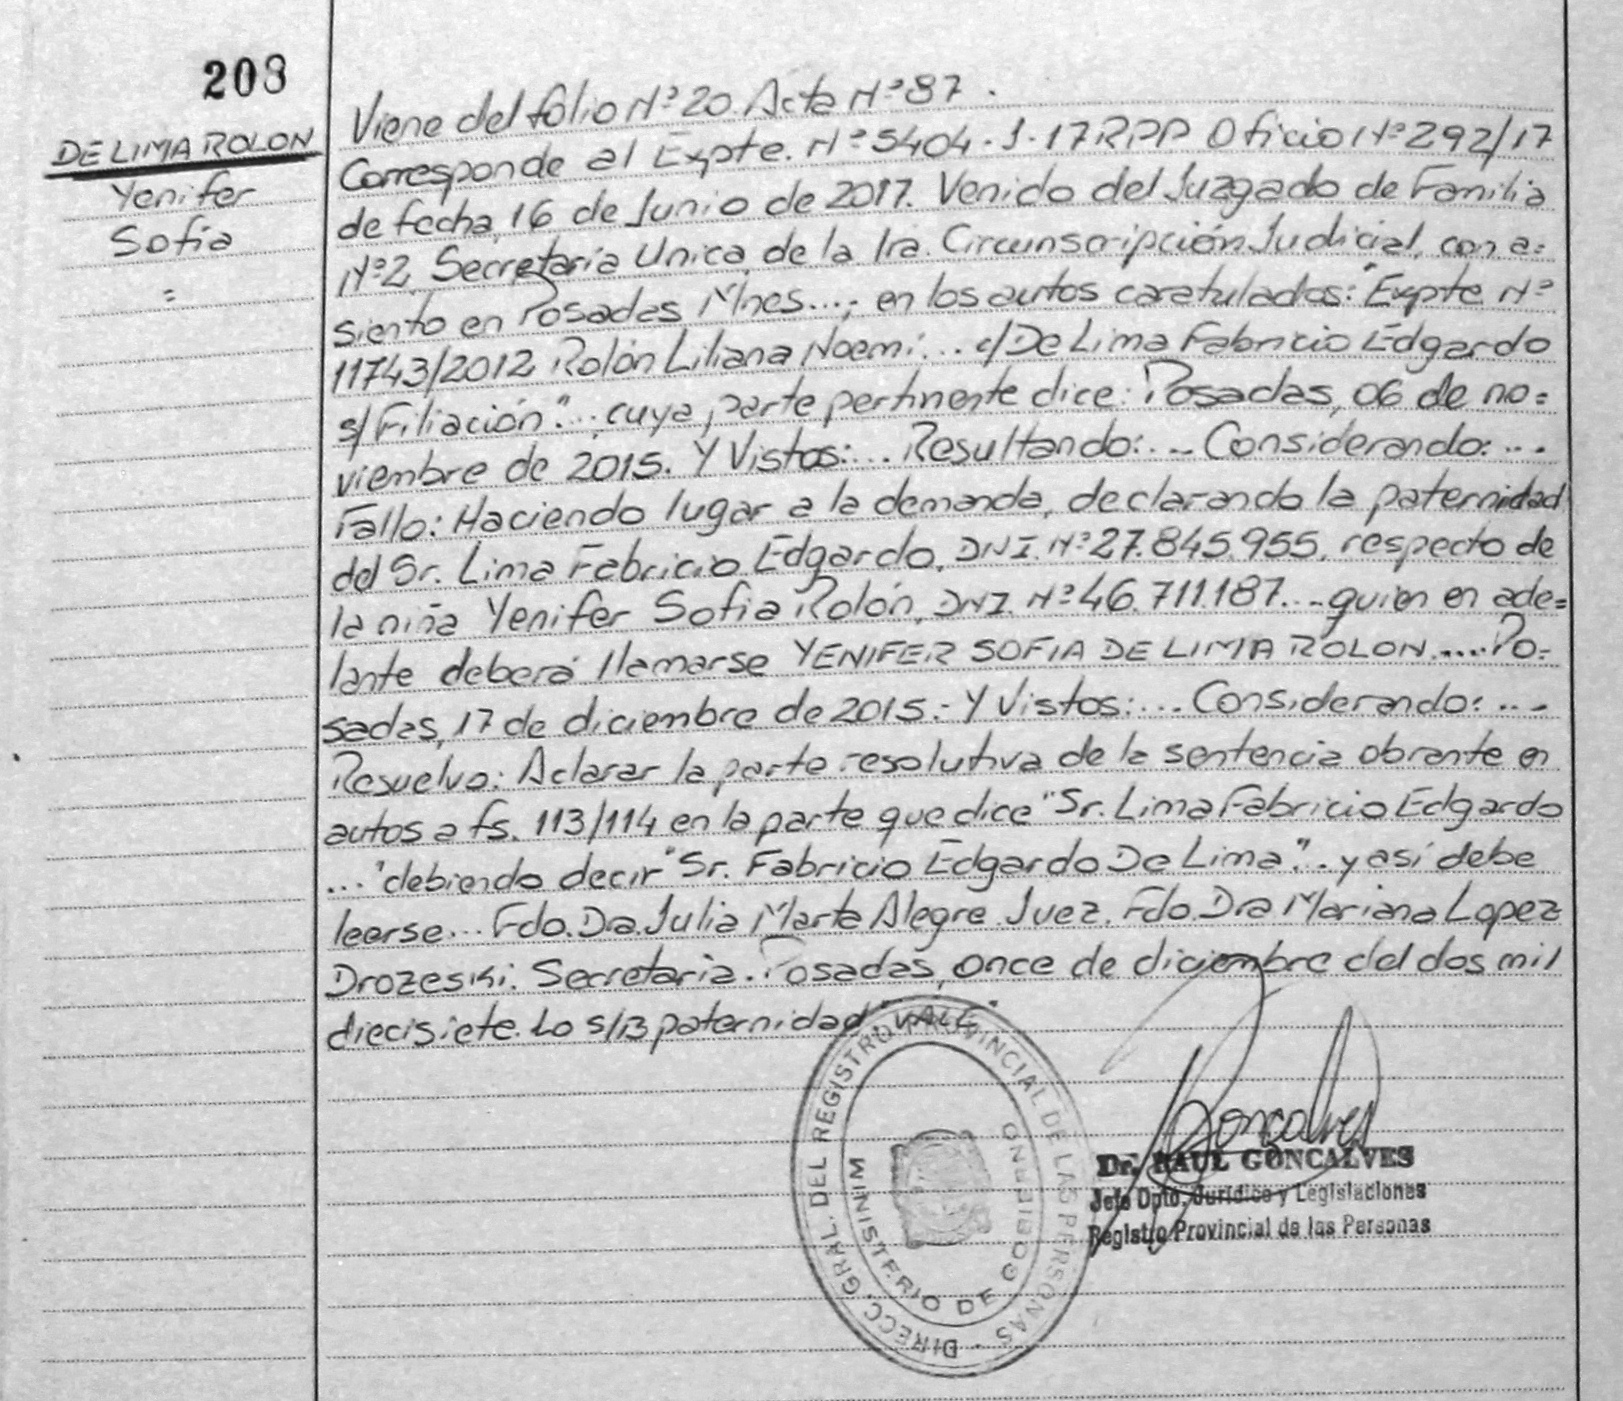 208
DE LIMA ROLON
Yenifer
Sofia
=
Viene del folio Nº 20. Acta Nº 87.
Corresponde al Expte. Nº 5404. J. 17 RPP Oficio Nº 292/17
de fecha, 16 de Junio de 2017. Venido del Juzgado de Familia
Nº 2, Secretaría Unica, de la 1ra. Circunscripción Judicial, con a=
siento en Posadas Mnes...; en los autos caratulados: "Expte Nº
11743/2012, Rolón Liliana Noemi... c/ De Lima Fabricio Edgardo
s/ Filiación"..., cuya parte pertinente dice: Posadas, 06 de no=
viembre de 2015. Y Vistos:... Resultando:... Considerando:...
Fallo: Haciendo lugar a la demanda, declarando la paternidad
del Sr. Lima Fabricio Edgardo, DNI. Nº 27.845.955, respecto de
la niña Yenifer Sofia Rolón, DNI. Nº 46.711.187... quien en ade=
lante deberá llamarse YENIFER SOFIA DE LIMA ROLON..... Po=
sadas, 17 de diciembre de 2015.- Y Vistos:... Considerando:...
Resuelvo: Aclarar la parte resolutiva de la sentencia obrante en
autos a fs. 113/114 en la parte que dice "Sr. Lima Fabricio Edgardo
..." debiendo decir "Sr. Fabricio Edgardo De Lima".. y así debe
leerse... Fdo. Dra. Julia Marta Alegre. Juez. Fdo. Dra Mariana Lopez
Drozeski. Secretaria. Posadas, once de diciembre del dos mil
diecisiete. Lo s/B paternidad". VALE"
DIRECC. GRAL. DEL REGISTRO PROVINCIAL DE LAS PERSONAS -
MINISTERIO DE GOBIERNO
Goncalves
Dr. RAUL GONCALVES
Jefe Dpto. Jurídico y Legislaciones
Registro Provincial de las Personas